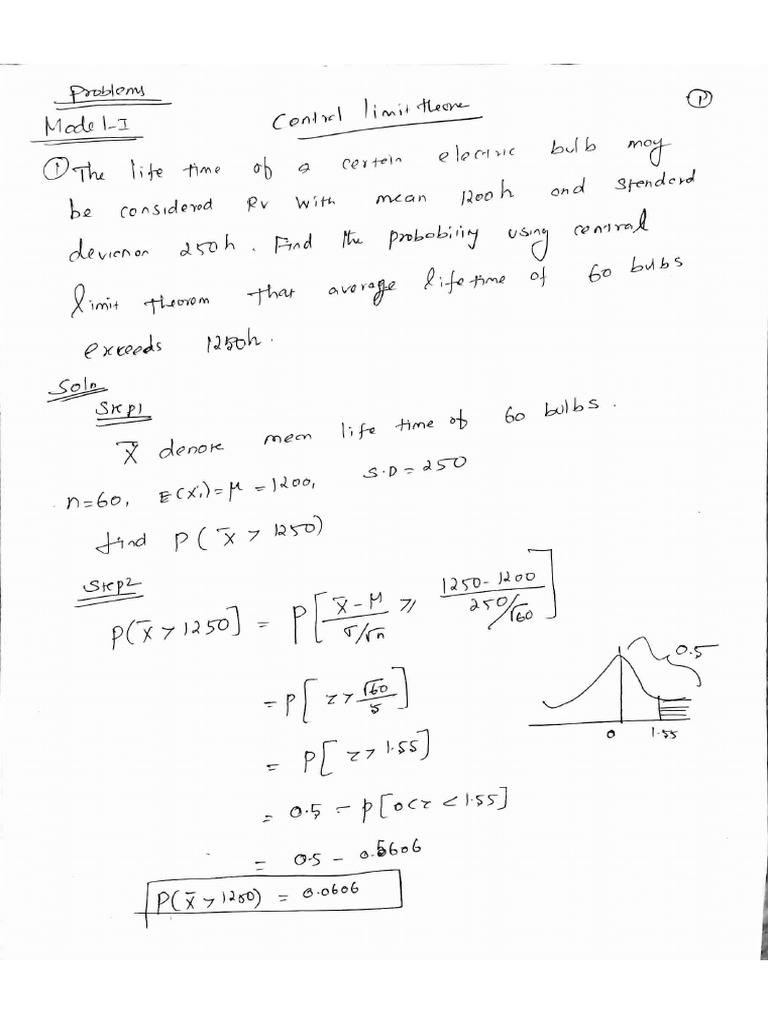 Problems
Model-I
Central limit theore
1
① The life time of a certein electric bulb may
be considered RV with mean 1200h and standard
devicnon 250h. Find the probability using central
limit theorem that average lifetime of 60 bubs
exceeds 1250h.
Soln
Step1
X̄ denote mean life time of 60 bulbs.
n=60, E(Xi)=μ=1200, S.D=250
find P(X̄ > 1250)
Step2
P(X̄ > 1250] = P[X̄-μ / σ/√n ⩾ 1250-1200 / 250/√60]
= P[z > √60/5]
= P[z > 1.55]
= 0.5 - P[0<z<1.55]
= 0.5 - 0.5606
P(X̄ > 1250) = 0.0606
0.5
0 1.55